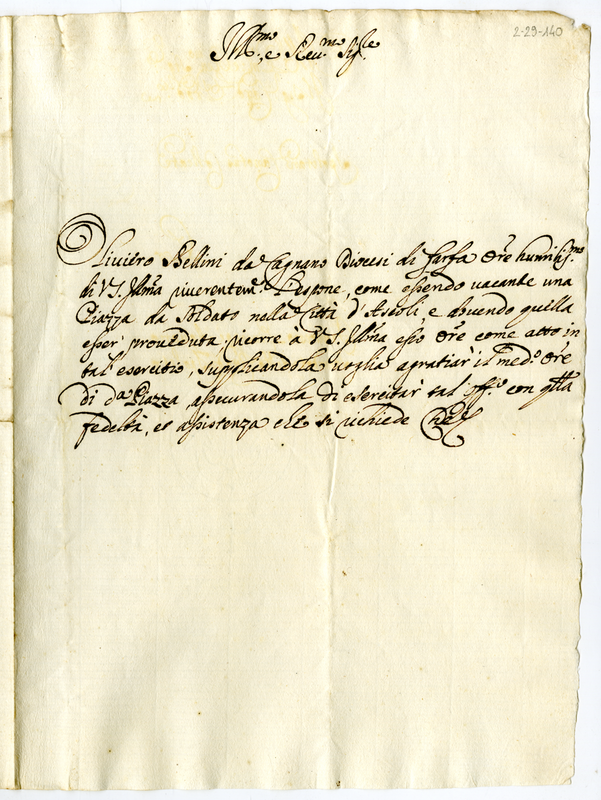 2-29-140
Ill.mo e Reu.mo Sig.re
Oliuiero Bellini da Cagnano Diocesi di farfa Ore humilis.mo
di V.S. Illma riuerentem.te l'espone, come essendo uacante una
Piazza da Soldato nella Città d'Ascoli, e douendo quella
esser prouéduta, ricorre à V.S. Illma esso Ore come atto in
tal esercitio, supplicandola uoglia agratiar' il med.o Ore
di d.a Piazza, assecurandola di esercitar tal off.o con q.lla
fedeltà, et assistenza che si richiede Che